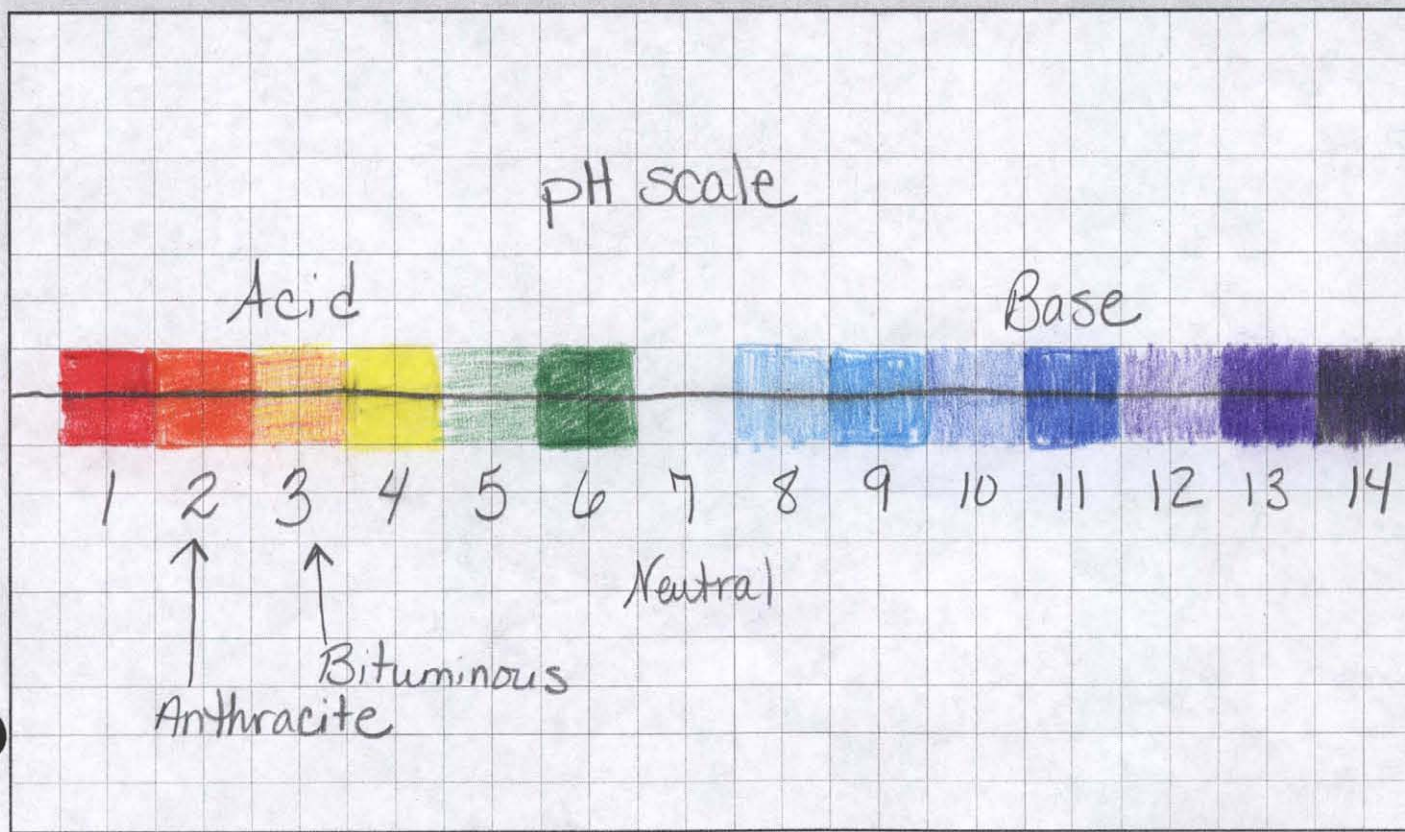 pH scale
Acid Base
1 2 3 4 5 6 7 8 9 10 11 12 13 14
Neutral
Bituminous
Anthracite